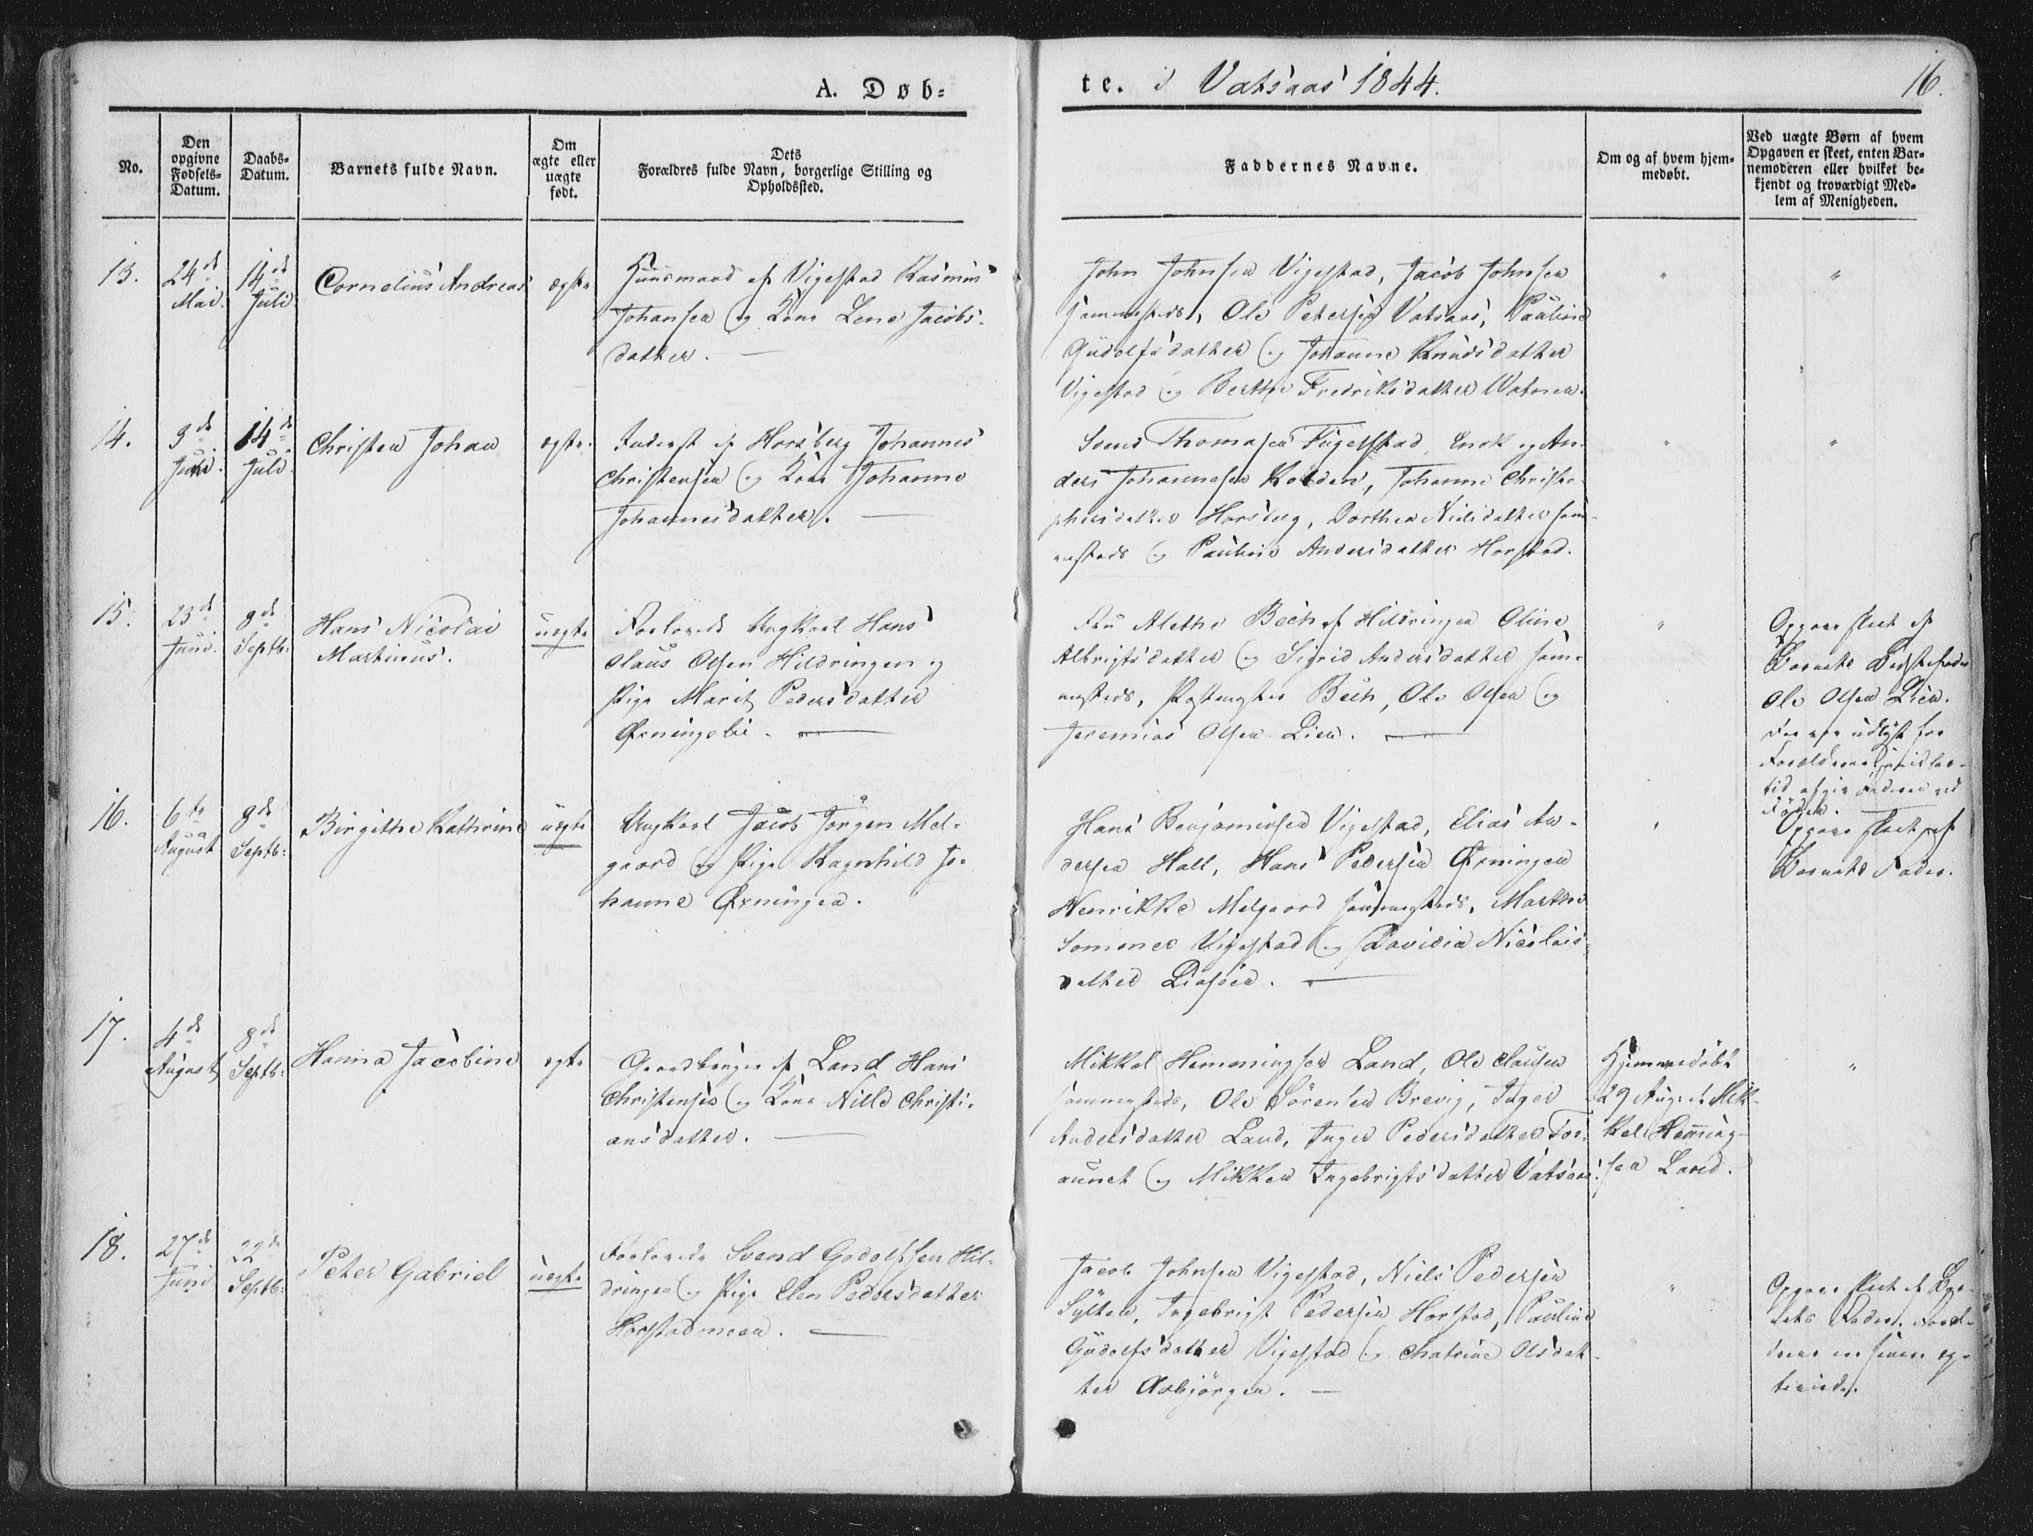 A. Døb=
te. i Vatsaas 1844.
16.
No.
Den
opgivne
Fødsels-
Datum.
Daabs-
Datum.
Barnets fulde Navn.
Om
ægte eller
uægte
født.
Dets
Forældres fulde Navn, borgerlige Stilling og
Opholdssted.
Faddernes Navne.
Om og af hvem hjem-
medøbt.
Ved uægte Børn af hvem
Opgaven er skeet, enten Bar-
nemoderen eller hvilket be-
kjendt og troværdigt Med-
lem af Menigheden.
13.
24de
Mai.
14de
Juli
Cornelius Andreas
ægte
Huusmand af Vigestad Rasmus
Johansen og Kone Lene Jacobs-
datter.
John Johnsen Vigestad, Jacob Johnsen
sammesteds, Ole Petersen Vatsaas, Pauline
Gudolfsdatter og Johanne Knudsdatter
Vigestad og Berthe Fredriksdatter
"
"
14.
3de
14de
Juli
Christen Johan
ægte.
Inderst af Horsberg Johannes
Christensen og Kone Johanne
Johannesdatter.
Svend Thomasen Fugelstad, Enok og An-
ders Johannesen Kolden, Johanne Christo-
phersdatter Horsberg, Dorthea Nielsdatter sam-
mesteds og Pauline Andersdatter Horstad.
"
"
15.
23de
Juni.
8de
Septb:
Hans Nicolai
Martinus.
uægte
Forlovede Ungkarl Hans
Olaus Olsen Hildringen og
Pige Marit Pedersdatter
Øxningslie.
Fru Alethe Bech af Hildringen Oline
Albrigtsdatter og Sigrid Andersdatter sam-
mesteds, Bech, Ole Olsen og
Jeremias Olsen Lien.
"
Opgave skeet af
Barnets Bedstefader
Ole Olsen Lien.
udlyst for
Forældrene
16.
6te
August
8de
Septb:
Birgithe Kathrine
uægte
Ungkarl Jacob Jørgen Mel-
gaard og Pige Ragnhild Jo-
hanne Øxningen.
Hans Benjaminsen Vigestad, Elias An-
dersen Hall, Hans Pedersen Øxningen
Henrikke Melgaard sammesteds, Marthe
Sommer Vigestad og Davidia Nicolais-
datter
Opgave skeet af
Barnets Fader.
17.
4de
August
8de
Septb:
Hanna Jacobine
ægte
Gaardbruger af Land Hans
Christensen og Kone Nille Christi-
ansdatter.
Mikkel Hemmingsen Land, Ole Clausen
sammesteds, Ole Sørensen Brevig, Inger
Andersdatter Land, Inger Pedersdatter Tor-
aunet og Mikken Ingebrigtsdatter Vatsaas.
Hjemmedøbt
29 Aug: af Mik-
kel Heming-
sen Land.
"
18.
27de
Juni
22de
Septb:
Peter Gabriel
uægte
Forlovede Svend Godolfsen Hil-
dringen og Pige Elen Pedersdatter
Horstadmoen.
Jacob Johnsen Vigestad, Niels Pedersen
Sylten, Ingebrigt Pedersen Horstad, Pauline
Gudolfsdatter Vigestad og Chatrine Olsdat-
ter Aabjørgen.
"
Opgave skeet af